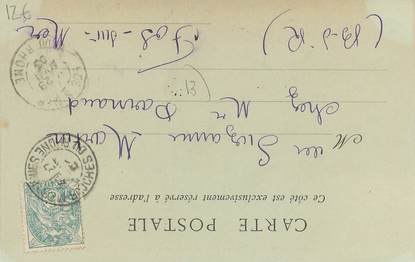 CARTE POSTALE
Ce côté est exclusivement réservé à l'adresse
M elle Suzanne Martin
chez Mr Darnaud
13
Fos-sur-Mer
(B-d-R)
12€